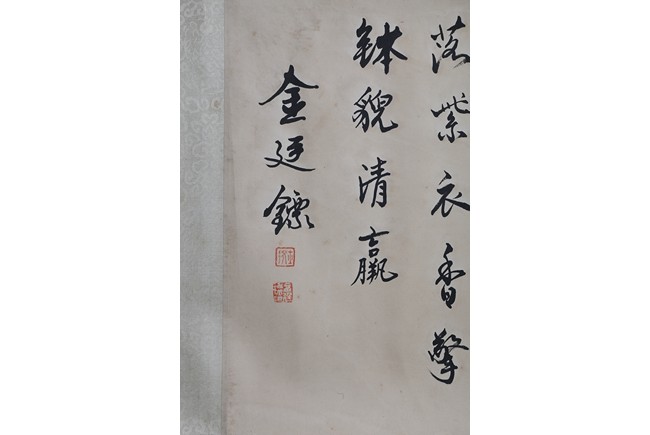 落紫衣香擎
鉢貌清羸
金廷